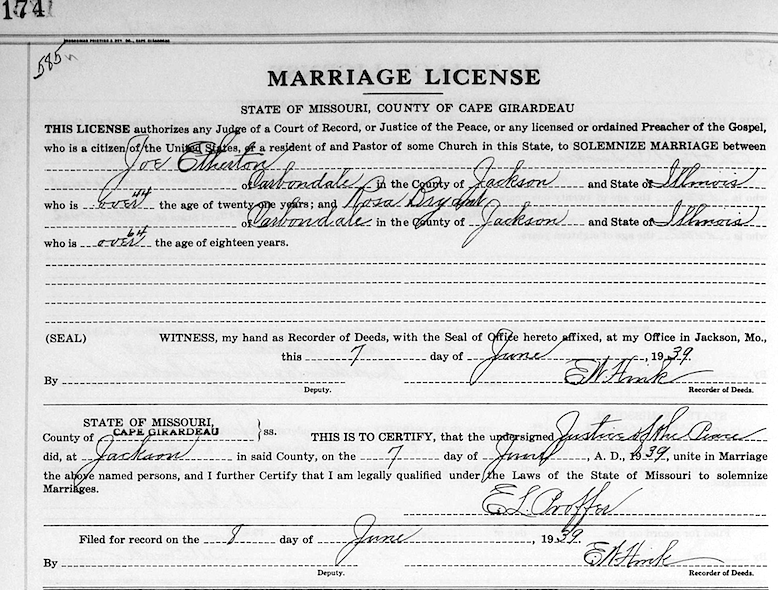 174
585
MARRIAGE LICENSE
STATE OF MISSOURI, COUNTY OF CAPE GIRARDEAU
THIS LICENSE authorizes any Judge of a Court of Record, or Justice of the Peace, or any licensed or ordained Preacher of the Gospel,
who is a citizen of the United States, or a resident of and Pastor of some Church in this State, to SOLEMNIZE MARRIAGE between
Joe Etherton
of Carbondale in the County of Jackson and State of Illinois
who is over 44 the age of twenty-one years; and Rosa Bryant
of Carbondale in the County of Jackson and State of Illinois
who is over 64 the age of eighteen years.
(SEAL) WITNESS, my hand as Recorder of Deeds, with the Seal of Office hereto affixed, at my Office in Jackson, Mo.,
this 7 day of June, 1939.
By E W Hink
Deputy. Recorder of Deeds.
STATE OF MISSOURI,
County of CAPE GIRARDEAU } ss. THIS IS TO CERTIFY, that the undersigned Justice of the Peace
did, at Jackson in said County, on the 7 day of June, A. D., 1939, unite in Marriage
the above named persons, and I further Certify that I am legally qualified under the Laws of the State of Missouri to solemnize
Marriages.
E. L. Proffer
Filed for record on the 8 day of June, 1939.
By E W Hink
Deputy. Recorder of Deeds.